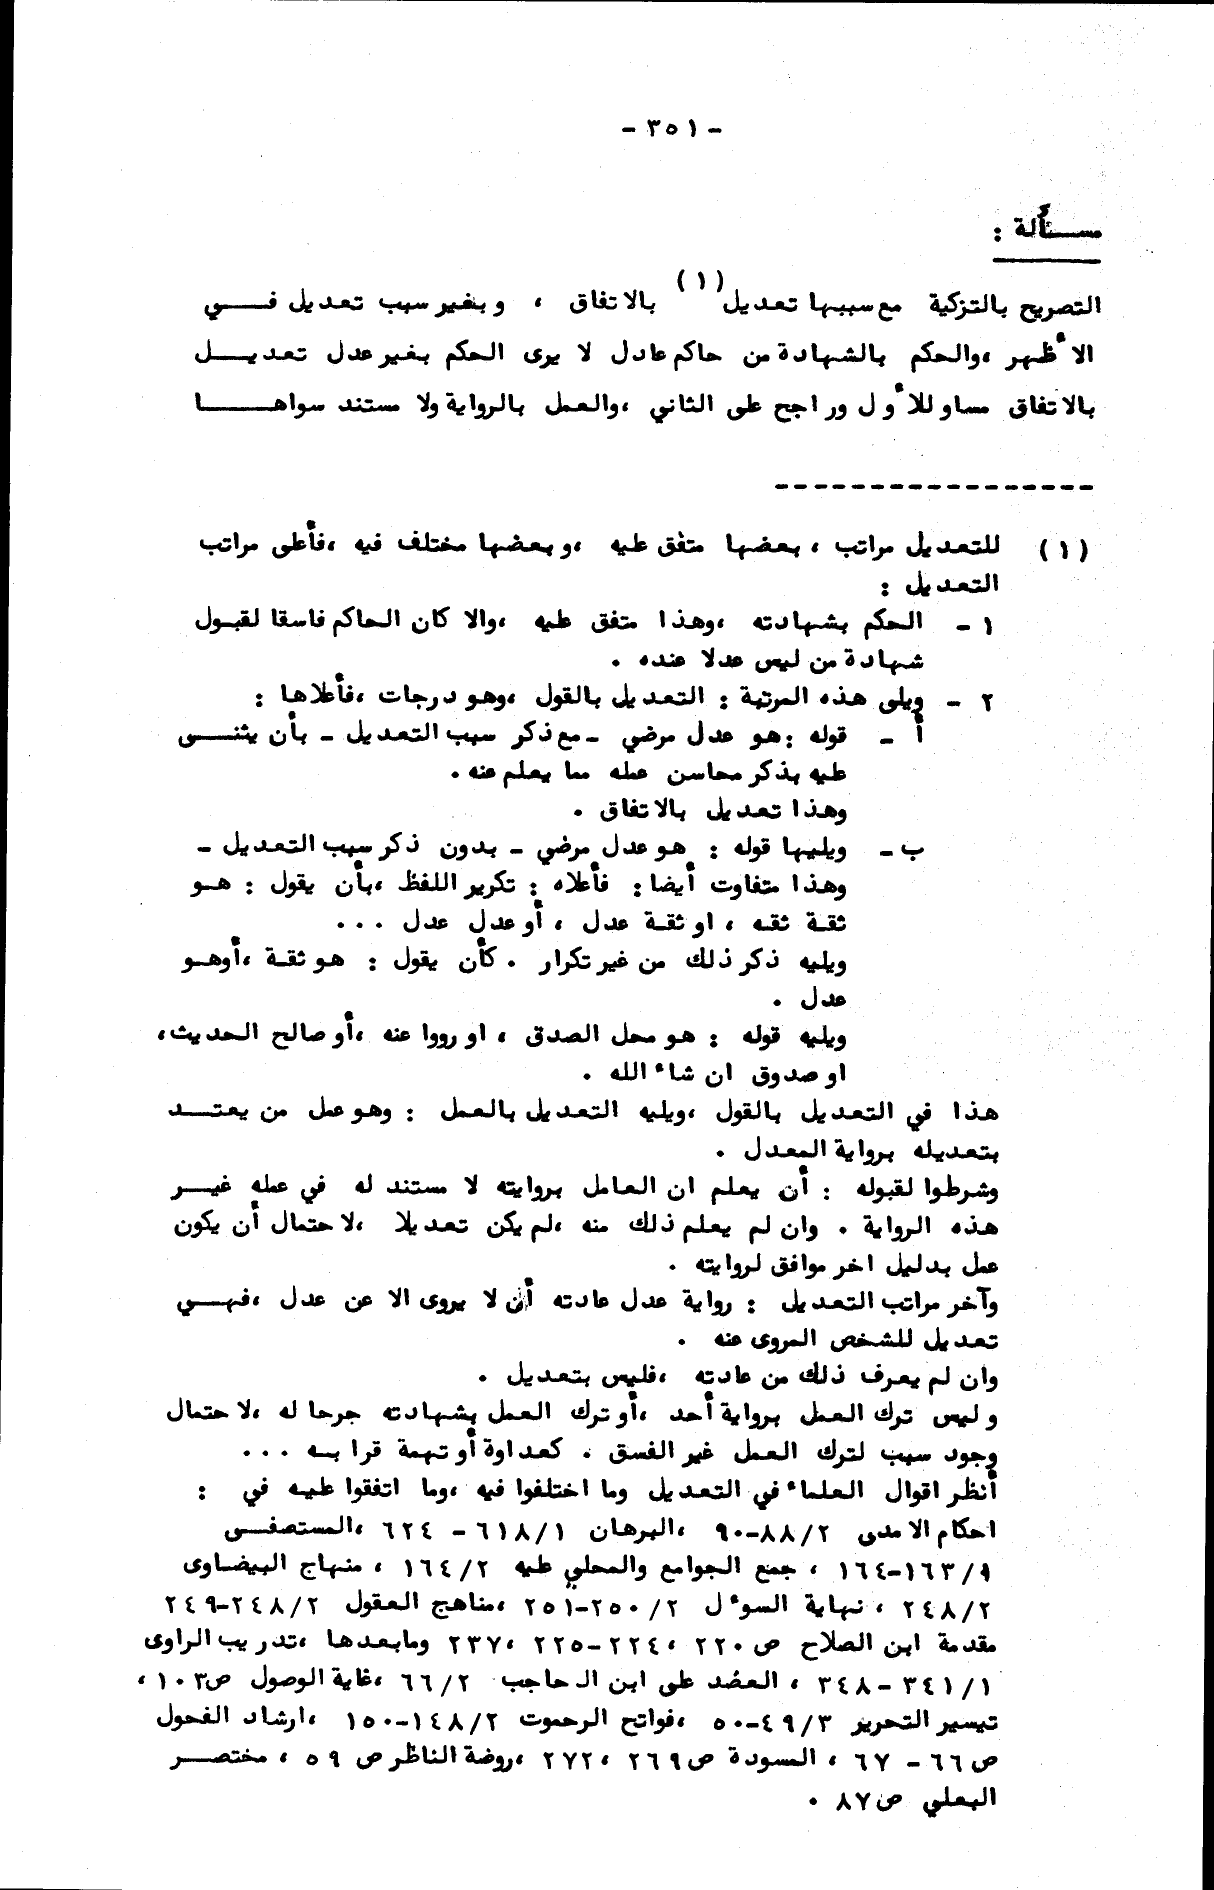 - ٣٥١ -
مسألة :
التصريح بالتزكية مع سببها تعديل (١) بالاتفاق ، وبغير سبب تعديل في
الأظهر ،والحكم بالشهادة من حاكم عادل لا يرى الحكم بغير عدل تعديل
بالاتفاق مساو للأول وراجح على الثاني ،والعمل بالرواية ولا مستند سواها
(١) للتعديل مراتب ، بعضها متفق عليه ،وبعضها مختلف فيه ،فأعلى مراتب
التعديل :
١ - الحكم بشهادته ،وهذا متفق عليه ،والا كان الحاكم فاسقا لقبول
شهادة من ليس عدلا عنده .
٢ - ويلى هذه المرتبة : التعديل بالقول ،وهو درجات ،فأعلاها :
أ - قوله :هو عدل مرضي - مع ذكر سبب التعديل - بأن يثنى
عليه بذكر محاسن عمله مما يعلم عنه .
وهذا تعديل بالاتفاق .
ب - ويليها قوله : هو عدل مرضي - بدون ذكر سبب التعديل -
وهذا متفاوت أيضا : فأعلاه : تكرير اللفظ ،بأن يقول : هو
ثقة ثقه ، او ثقة عدل ، أو عدل عدل ...
ويليه ذكر ذلك من غير تكرار . كأن يقول : هو ثقة ،أوهو
عدل .
ويليه قوله : هو محل الصدق ، او رووا عنه ،أو صالح الحديث،
او صدوق ان شاء الله .
هذا في التعديل بالقول ،ويليه التعديل بالعمل : وهو عمل من يعتد
بتعديله برواية المعدل .
وشرطوا لقبوله : أن يعلم ان العامل بروايته لا مستند له في عمله غير
هذه الرواية . وان لم يعلم ذلك منه ،لم يكن تعديلا ،لاحتمال أن يكون
عمل بدليل اخر موافق لروايته .
وآخر مراتب التعديل : رواية عدل عادته أن لا يروى الا عن عدل ،فهي
تعديل للشخص المروى عنه .
وان لم يعرف ذلك من عادته ،فليس بتعديل .
وليس ترك العمل برواية أحد ،أو ترك العمل بشهادته جرحا له ،لاحتمال
وجود سبب لترك العمل غير الفسق . كعداوة أو تهمة قرابه ...
أنظر اقوال العلماء في التعديل وما اختلفوا فيه ،وما اتفقوا عليه في :
احكام الامدى ٨٨/٢-٩٠ ،البرهان ٦١٨/١ - ٦٢٤ ،المستصفى
١٦٣/١-١٦٤ ، جمع الجوامع والمحلي عليه ١٦٤/٢ ، منهاج البيضاوى
٢٤٨/٢ ، نهاية السول ٢٥٠/٢-٢٥١ ،مناهج العقول ٢٤٨/٢-٢٤٩
مقدمة ابن الصلاح ص ٢٢٠ ، ٢٢٤-٢٢٥ ،٢٣٧ ومابعدها ،تدريب الراوى
٣٤١/١ - ٣٤٨ ، العضد على ابن الحاجب ٦٦/٢ ،غاية الوصول ص١٠٣ ،
تيسير التحرير ٤٩/٣-٥٠ ،فواتح الرحموت ١٤٨/٢-١٥٠ ،ارشاد الفحول
ص٦٦ - ٦٧ ، المسودة ص٢٦٩ ،٢٧٢ ،روضة الناظر ص ٥٩ ، مختصر
البعلي ص ٨٧ .